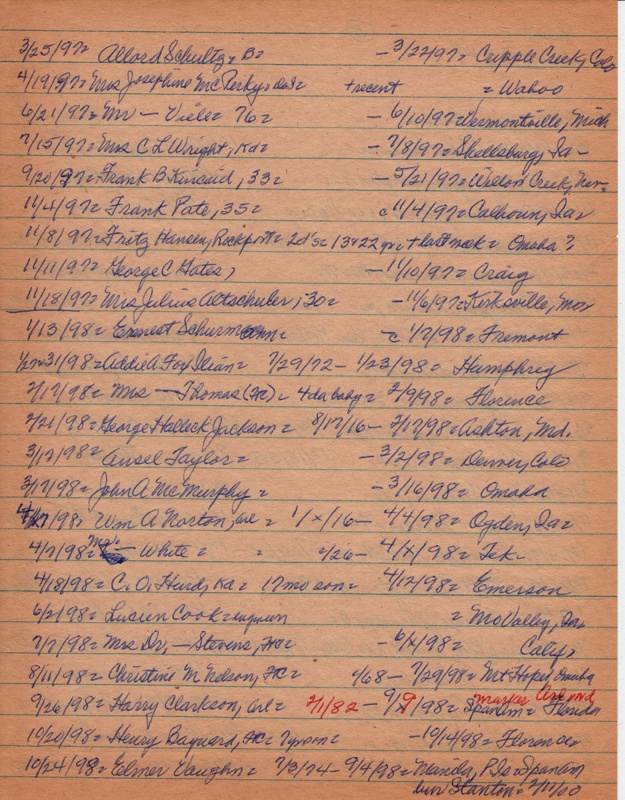 3/25/97= Allord Schultz, B= -3/22/97= Cripple Creek, Colo
4/19/97= Mrs Josephine McPerky= + recent = Wahoo
6/21/97= Mr — Viele= 76= - 6/10/97= Vermontville, Mich
7/15/97= Mrs C L Wright, Ka= - 7/8/97= Shellsburg, Ia-
9/20/97= Frank B Kincaid, 33= - 5/21/97= Creek,
11/4/97= Frank Pate, 35= c 11/4/97= Calhoun, Ia=
11/8/97= Fritz Hansen, Rockport= 2d's= 13+22 yr= + last week= Omaha?
11/11/97= George C Gates, -11/10/97= Craig
11/18/97= Mrs Julius Altschuler, 30= -11/6/97= Kirksville, Mo=
4/13/98= Ernest Schurmann= c 4/7/98= Fremont
1/27+31/98= Addie A Fox Ilian= 7/29/72- 1/23/98= Humphrey
2/17/98= Mrs — Thomas (FC)= 4 da baby= 2/9/98= Florence
2/21/98= George Halleck Jackson= 8/17/16- 2/17/98= Ashton, Md.
3/17/98= Ansel Taylor= -3/2/98= Denver, Colo
3/17/98= John A McMurphy= -3/16/98= Omaha
4/7/98= Wm A Norton, arl= 1/x/16- 4/4/98= Ogden, Ia=
4/7/98= Mrs — White= = c/26- 4/x/98= Tek-
4/18/98= C. O. Hurd, Ka= 17 mo son= 4/12/98= Emerson
6/21/98= Lucien Cook= = Mo Valley, Ia=
7/7/98= Mrs Dr, — Stevens, FC= -6/x/98= Calif=
8/11/98= Christine M Nelson, FC= c/68- 7/29/98= Mt Hope, Omaha
9/26/98= Harry Clarkson, arl= 2/1/82- 9/9/98= Spanam= Florida
marker Arl
10/20/98= Henry Bayard, FC= -10/14/98= Florence
10/24/98= Elmer Vaughn= 7/3/74- 9/4/98= P.I.= Spanam
bur Stanton= 2/11/00